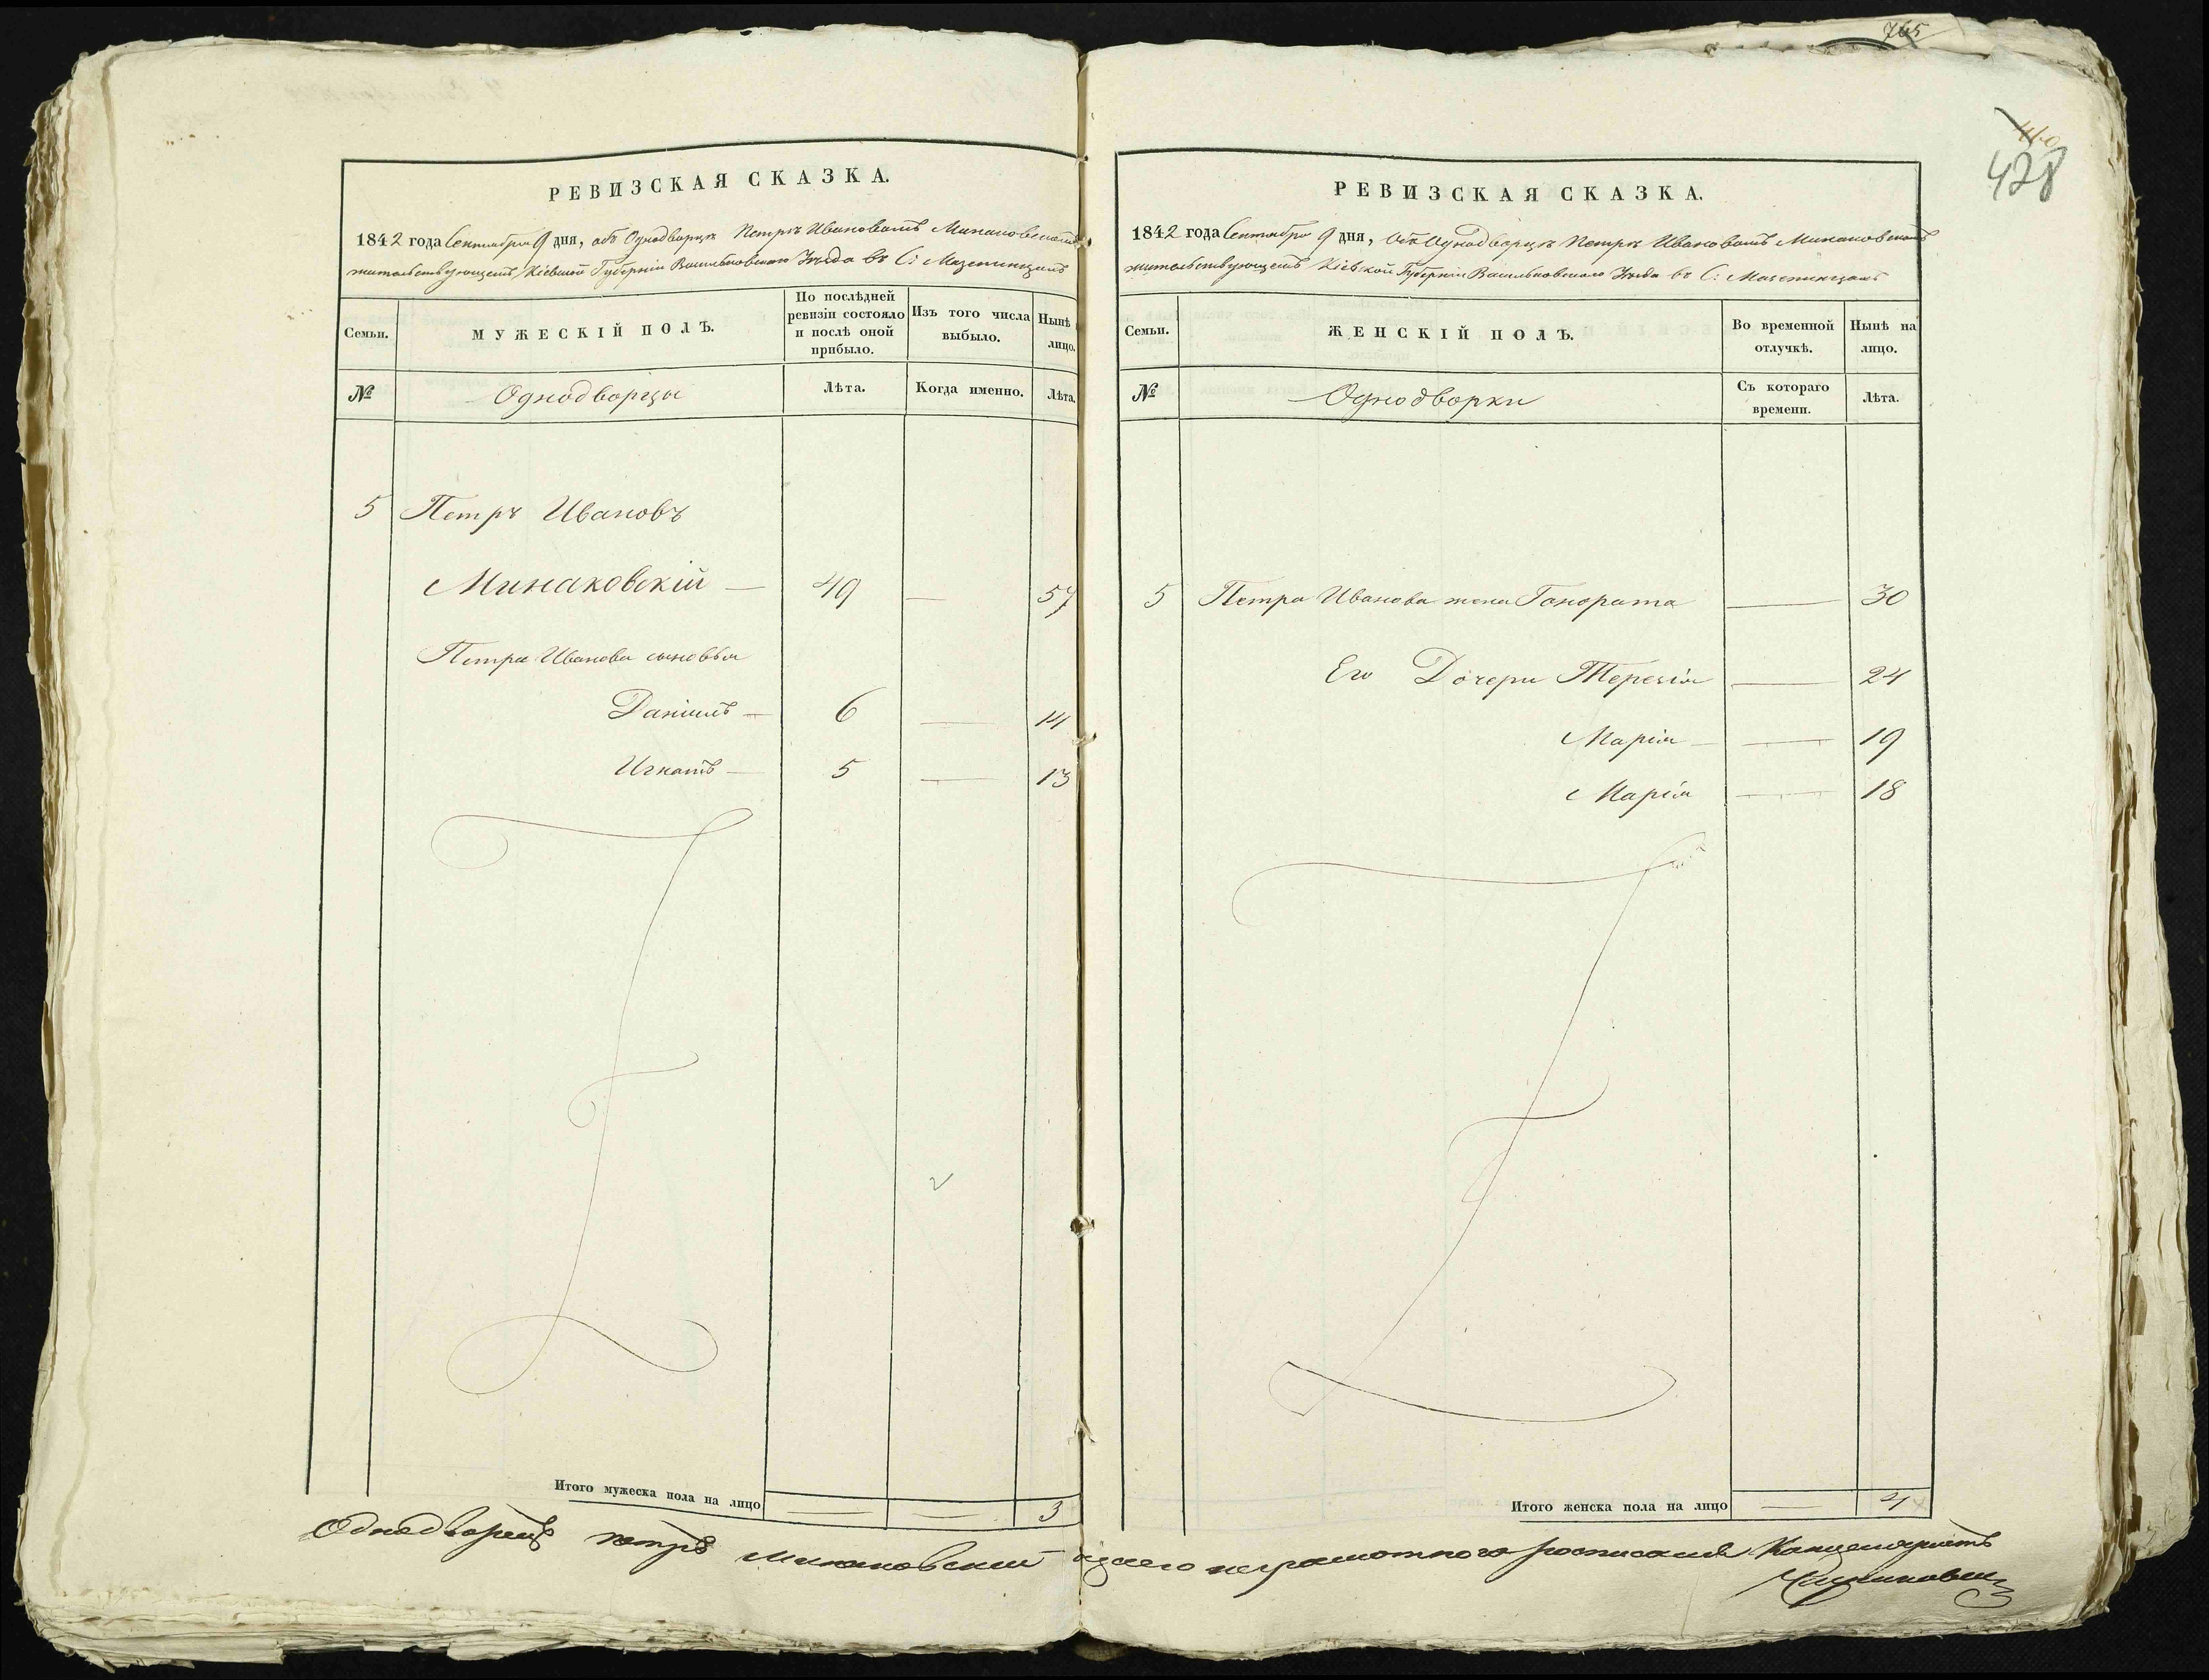 765
440
428
РЕВИЗСКАЯ СКАЗКА.
1842 года Сентября 9 дня, объ Однодворцѣ Петрѣ Ивановомъ Минаковскомъ
жительствующемъ Кіевской Губерніи Васильковскаго Уѣзда въ С: Мазепинцахъ
Семьи.
МУЖЕСКІЙ ПОЛЪ.
По послѣдней ревизіи состояло и послѣ оной прибыло.
Изъ того числа выбыло.
Нынѣ лицо.
№
Однодворцы
Лѣта.
Когда именно.
Лѣта.
5 Петръ Ивановъ
Минаковскій — 49 — 57
Петра Иванова сыновья
Даніилъ — 6 — 14
Игнатъ — 5 — 13
Итого мужеска пола на лицо — — 3
РЕВИЗСКАЯ СКАЗКА.
1842 года Сентября 9 дня, Объ Однодворцѣ Петрѣ Ивановомъ Минаковскомъ
жительствующемъ Кіевской Губерніи Васильковскаго Уѣзда въ С: Мазепинцахъ
Семьи.
ЖЕНСКІЙ ПОЛЪ.
Во временной отлучкѣ.
Нынѣ на лицо.
№
Однодворки
Съ котораго времени.
Лѣта.
5 Петра Иванова жена Гонората — 30
Его Дочери Терезія — 24
Марія — — 19
Марія — 18
Итого женска пола на лицо — 4
Однодворецъ петръ Минаковский азаего неграмотного росписался Канцеляристъ